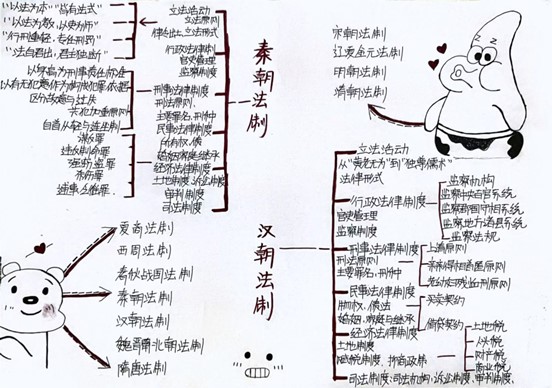 "以法为本" "皆有法式"
"以法为教,以吏为师"
"行刑重轻,专任刑罚"
"法自君出,君主独断"
以身高为刑事责任标准
以有无犯意作为构成犯罪依据
区分故意与过失
共犯加重原则
自首从轻与连坐制
立法活动
立法原则
律令出台,立法形式
行政法律制度
官吏管理
监察制度
刑事法律制度
刑法原则
主要罪名,刑种
民事法律制度
所有权,债
婚姻家庭与继承
经济法律制度
土地制度
审判制度
司法制度
秦朝法制
宋朝法制
辽夏金元法制
明朝法制
清朝法制
汉朝法制
立法活动
从"黄老无为"到"独尊儒术"
法律形式
行政法律制度
官吏管理
监察制度
监察机构
监察中央百官系统
监察法规
刑事法律制度
刑法原则
主要罪名,刑种
上请原则
亲亲得相首匿原则
民事法律制度
所有权,债法
婚姻,家庭与继承
买卖契约
借贷契约
经济法律制度
土地制度
赋税制度,抑商政策
土地税
人头税
财产税
商业税
司法制度:司法机构,诉讼制度,审判制度
夏商法制
西周法制
春秋战国法制
秦朝法制
汉朝法制
魏晋南北朝法制
隋唐法制